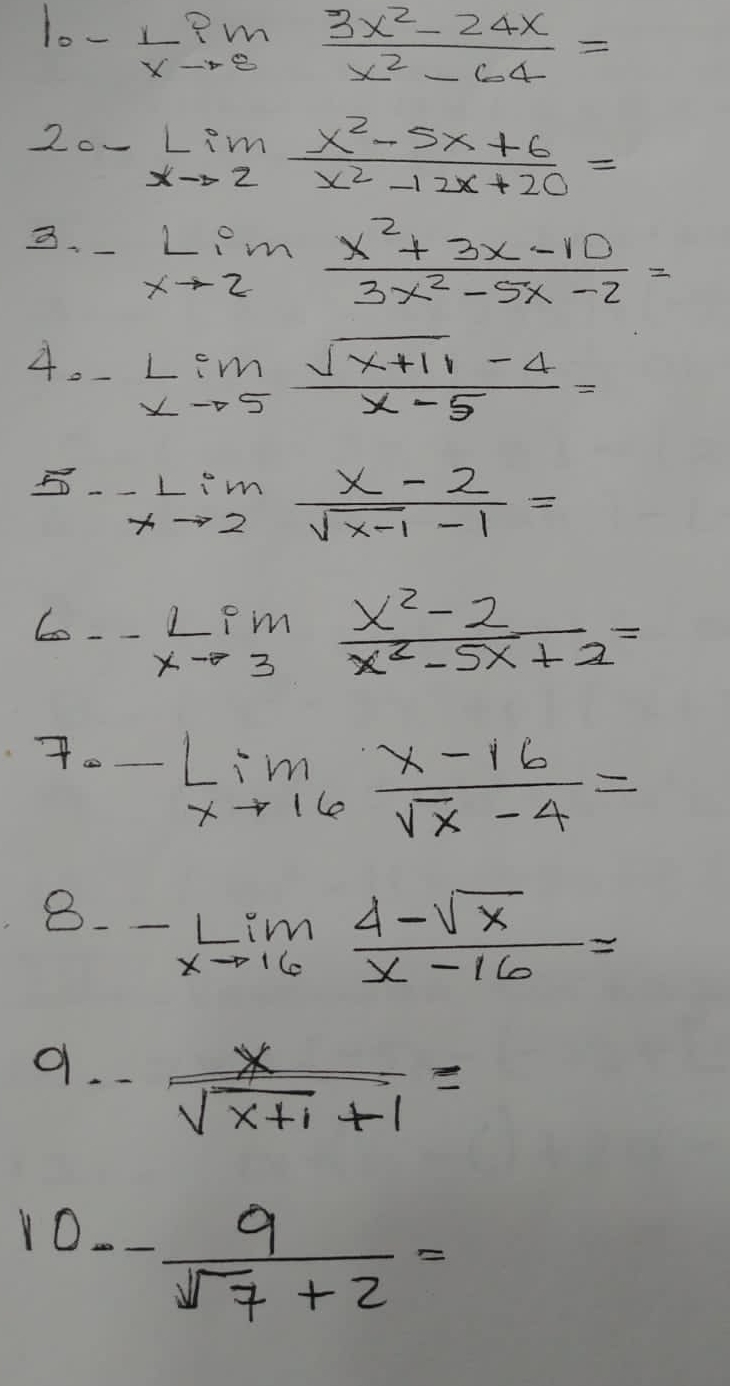 1.- Lim x→8 (3x² - 24x)/(x² - 64) =
2.- Lim x→2 (x² - 5x + 6)/(x² - 12x + 20) =
3.- Lim x→2 (x² + 3x - 10)/(3x² - 5x - 2) =
4.- Lim x→5 (√(x+11) - 4)/(x - 5) =
5.- Lim x→2 (x - 2)/(√(x-1) - 1) =
6.- Lim x→3 (x² - 2)/(x² - 5x + 2) =
7.- Lim x→16 (x - 16)/(√x - 4) =
8.- Lim x→16 (4 - √x)/(x - 16) =
9.- x/(√(x+1) + 1) =
10.- 9/(√7 + 2) =